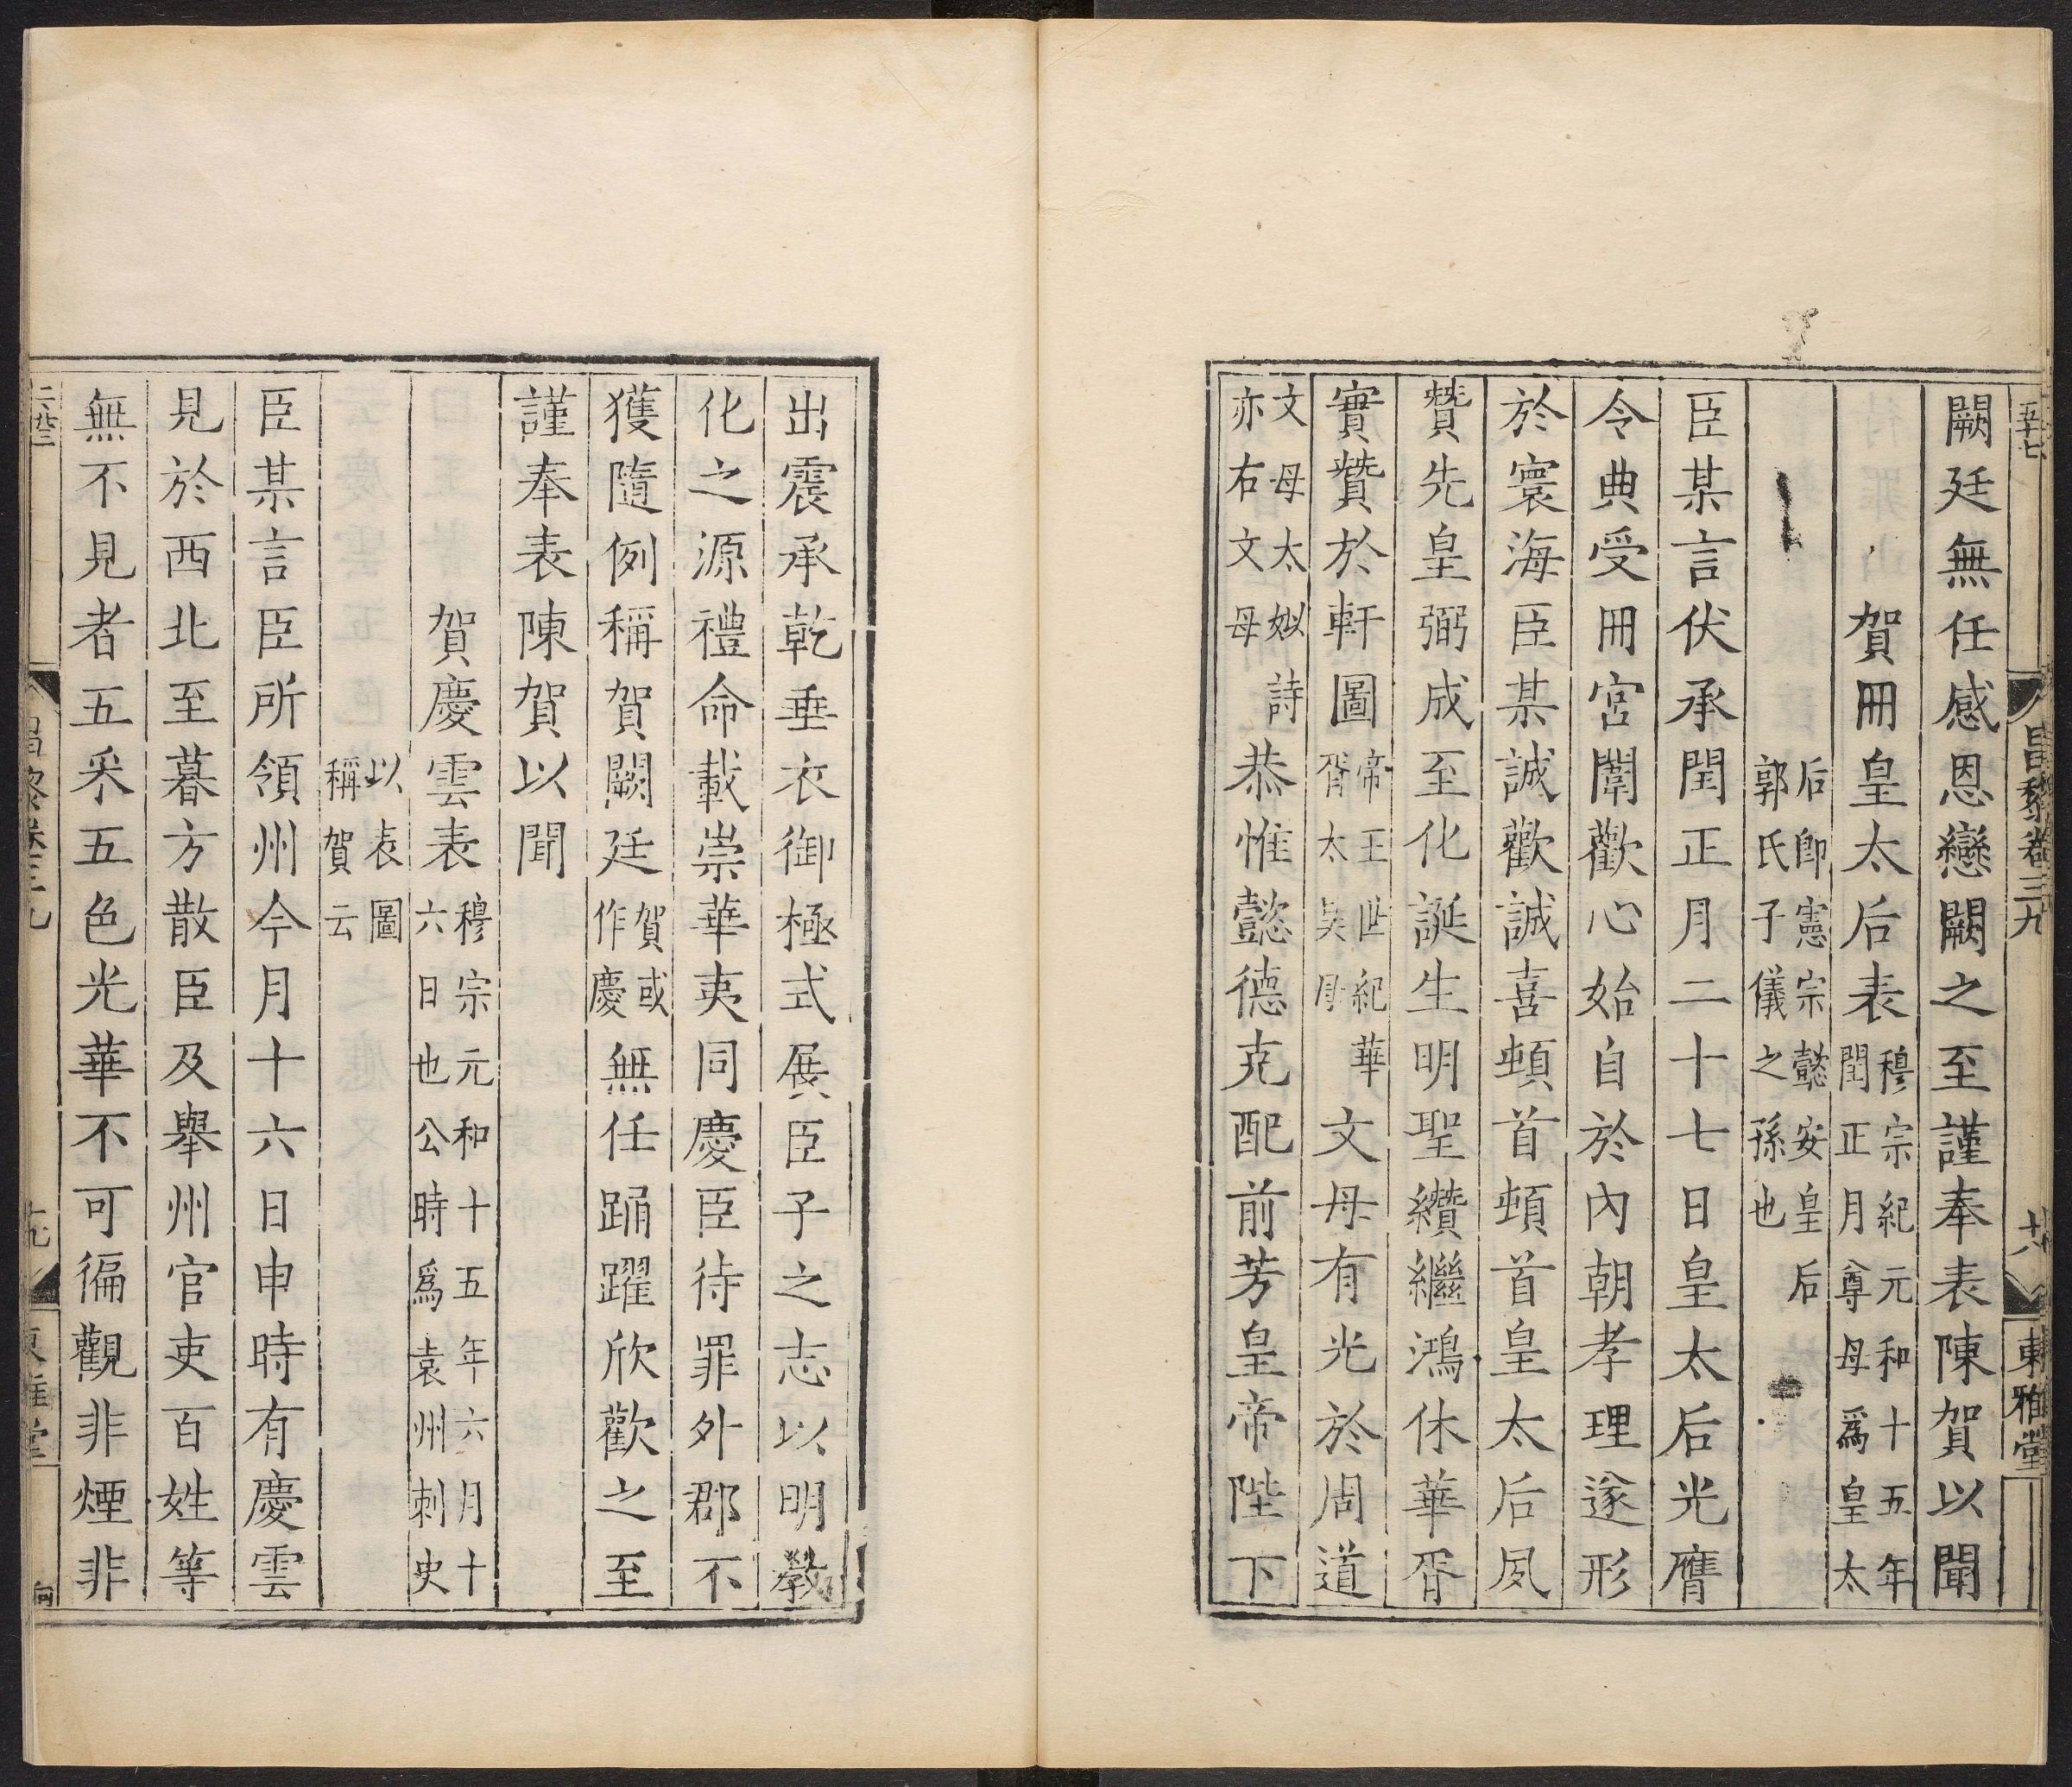 闕廷無任感恩戀闕之至謹奉表陳賀以聞
賀冊皇太后表穆宗紀元和十五年閏正月尊母爲皇太
后即憲宗懿安皇后郭氏子儀之孫也
臣某言伏承閏正月二十七日皇太后光膺
令典受冊宮闈歡心始自於內朝孝理遂形
於寰海臣某誠歡誠喜頓首頓首皇太后夙
贊先皇弼成至化誕生明聖纘繼鴻休華胥
實贊於軒圖帝王世紀華胥太昊母文母有光於周道
文母太姒詩亦右文母恭惟懿德克配前芳皇帝陛下
昌黎卷三九
東雅堂
出震承乾垂衣御極式展臣子之志以明教
化之源禮命載崇華夷同慶臣待罪外郡不
獲隨例稱賀闕廷賀或作慶無任踊躍欣歡之至
謹奉表陳賀以聞
賀慶雲表穆宗元和十五年六月十六日也公時爲袁州刺史
以表圖稱賀云
臣某言臣所領州今月十六日申時有慶雲
見於西北至暮方散臣及舉州官吏百姓等
無不見者五采五色光華不可徧觀非煙非
昌黎卷三九
東雅堂